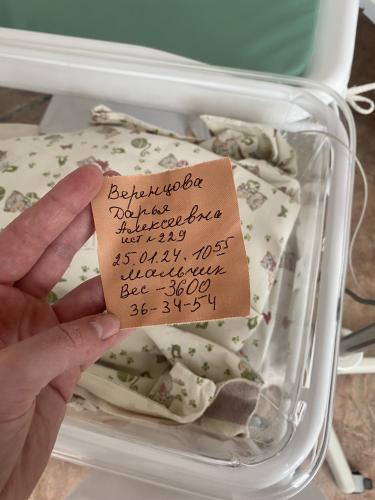 Веренцова
Дарья
Алексеевна
ист. 229
25.01.24. 10⁵⁵
мальчик
Вес -3600
36-34-54